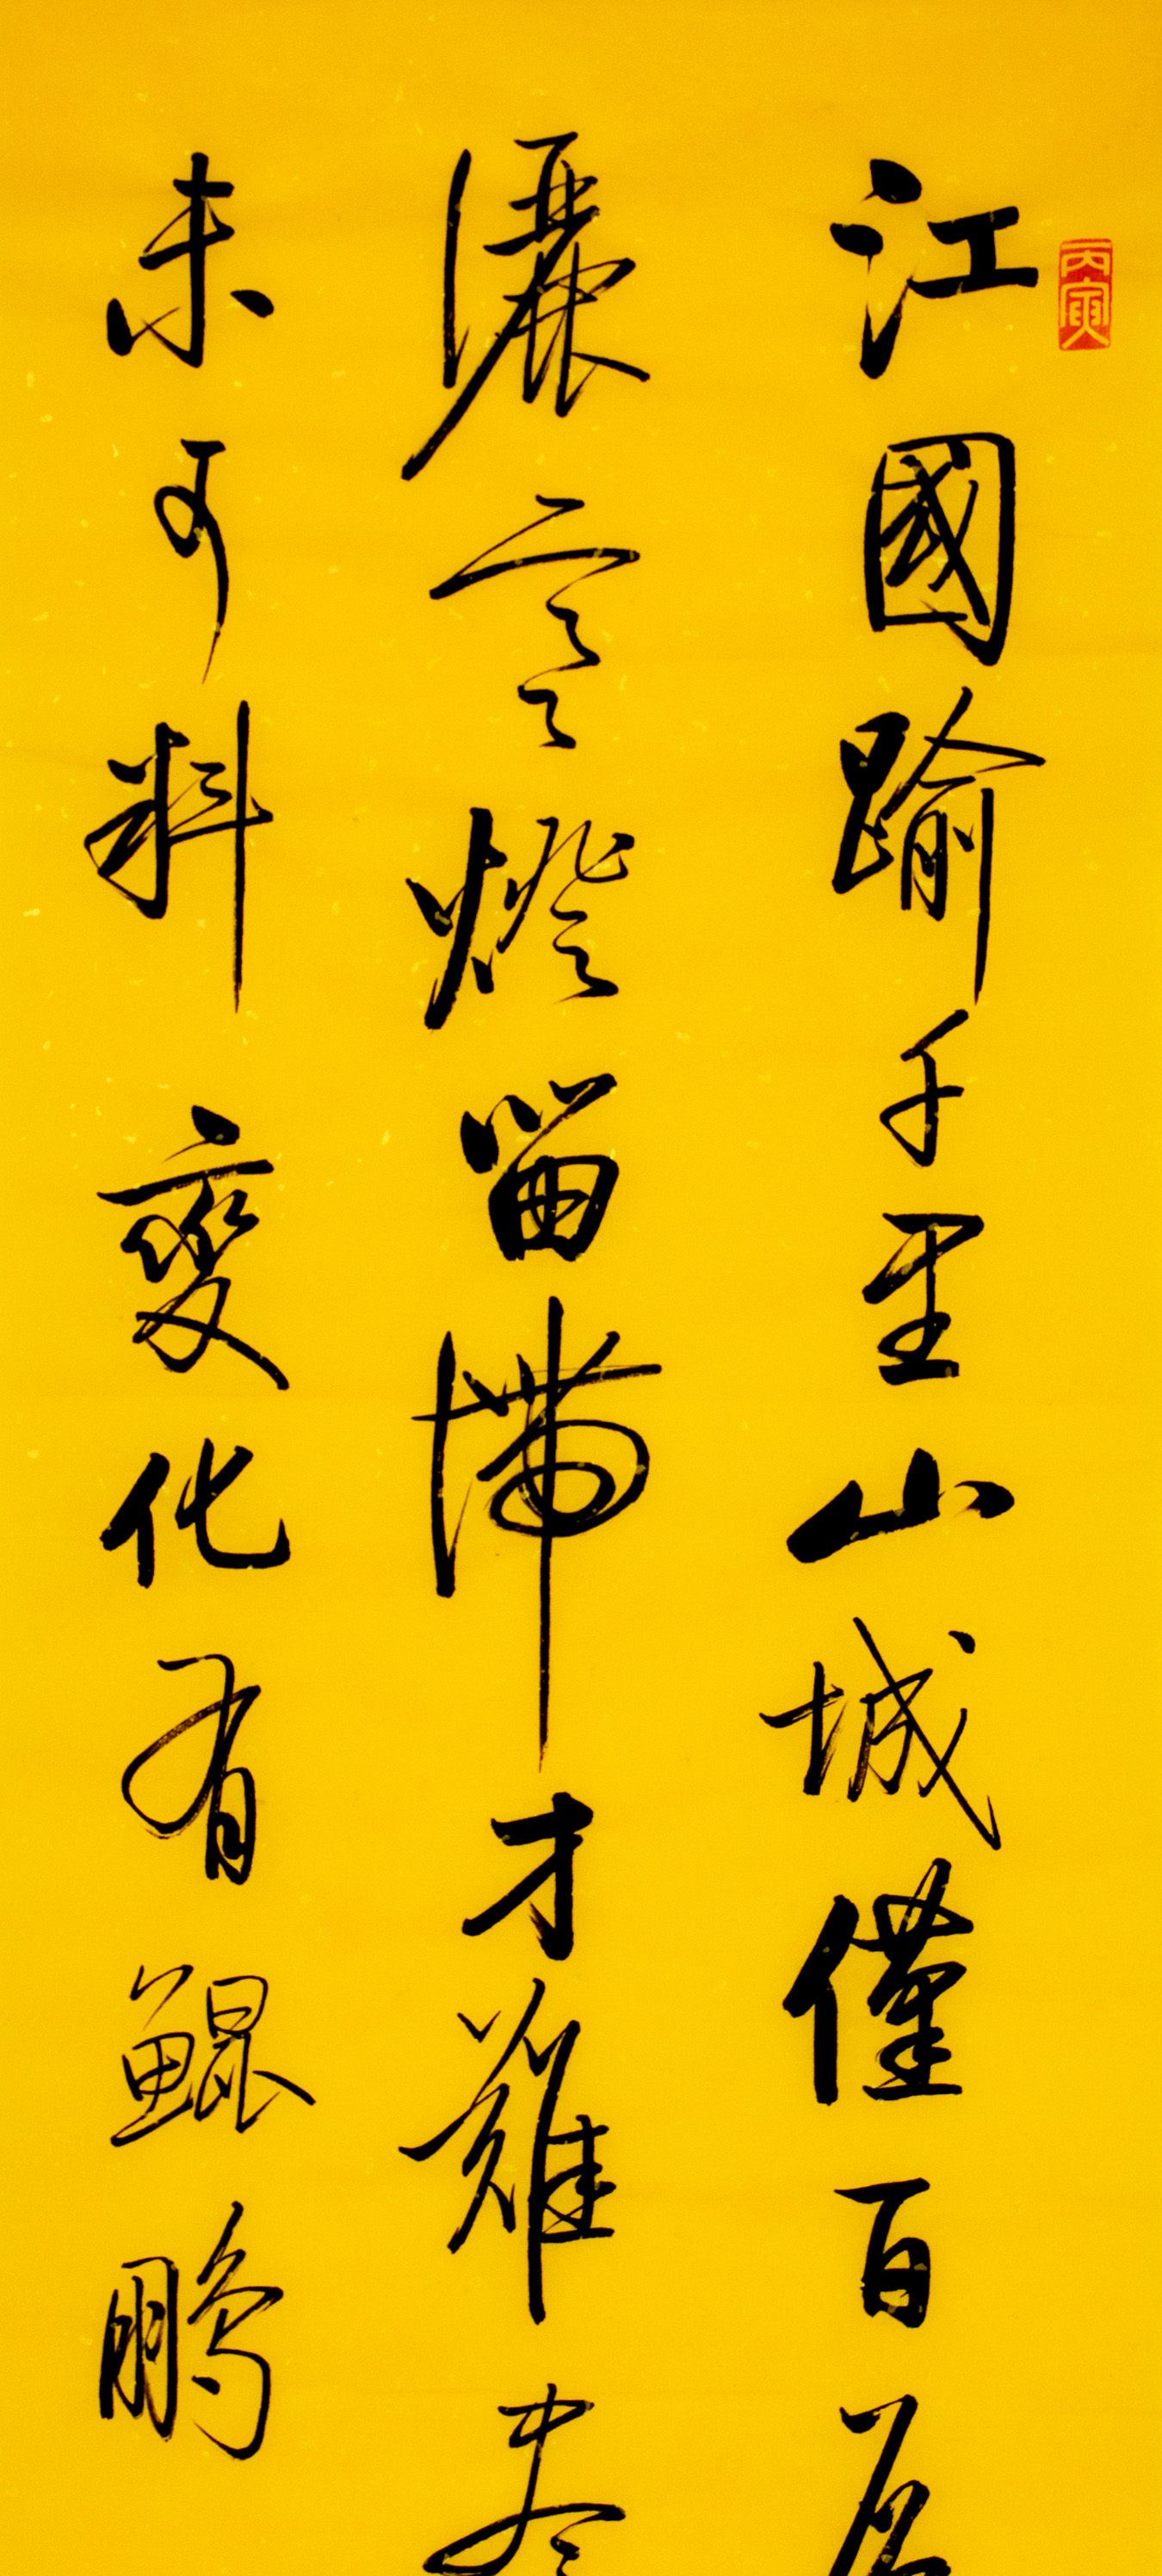 丙寅
江國踰千里山城僅百
灑寒燈留滯才難盡
未可料變化有鯤鵬